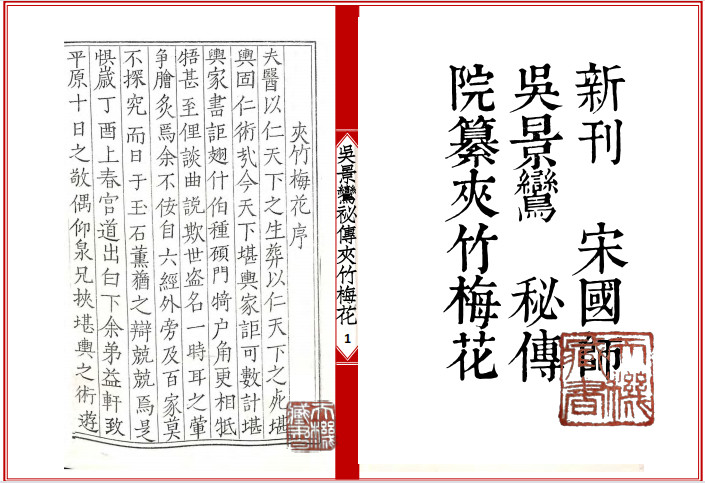 新刊 宋國師
吳景鸞 秘傳
院纂夾竹梅花
天機藏書
吳景鸞祕傳夾竹梅花
1
夾竹梅花序
夫醫以仁天下之生葬以仁天下之死堪
輿固仁術㢤今天下堪輿家詎可數計堪
輿家書詎翅什伯種碩門犄户角更相牴
牾甚至俚談曲說欺世盗名一時耳之葷
爭膾炙焉余不佞自六經外旁及百家莫
不探究而日于玉石薰蕕之辯兢兢焉是
惧嵗丁酉上春官道出白下余弟益軒致
平原十日之敬偶仰泉兄挾堪輿之術遊
天機藏書